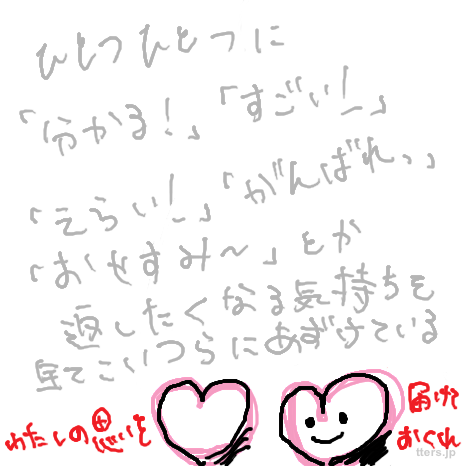 ひとつひとつに
「分かる！」「すごい！」
「えらい！」「がんばれっ」
「おやすみ〜」とか
返したくなる気持ちを
全てこいつらにあずけている
わたしの思いを
届けて
おくれ
tters.jp